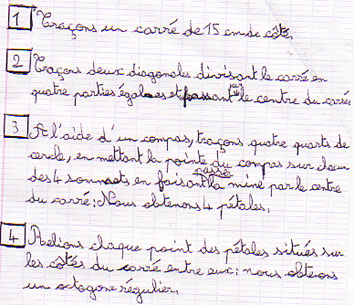 1 Traçons un carré de 15 cm de côté.
2 Traçons deux diagonales divisant le carré en
quatre parties égales et passant le centre du carré
3 A l'aide d'un compas, traçons quatre quarts de
cercle, en mettant la pointe du compas sur chacun
des 4 sommets en faisant passer la mine par le centre
du carré : Nous obtenons 4 pétales.
4 Relions chaque point des pétales situés sur
les côtés du carré entre eux : nous obtenons
un octogone régulier.